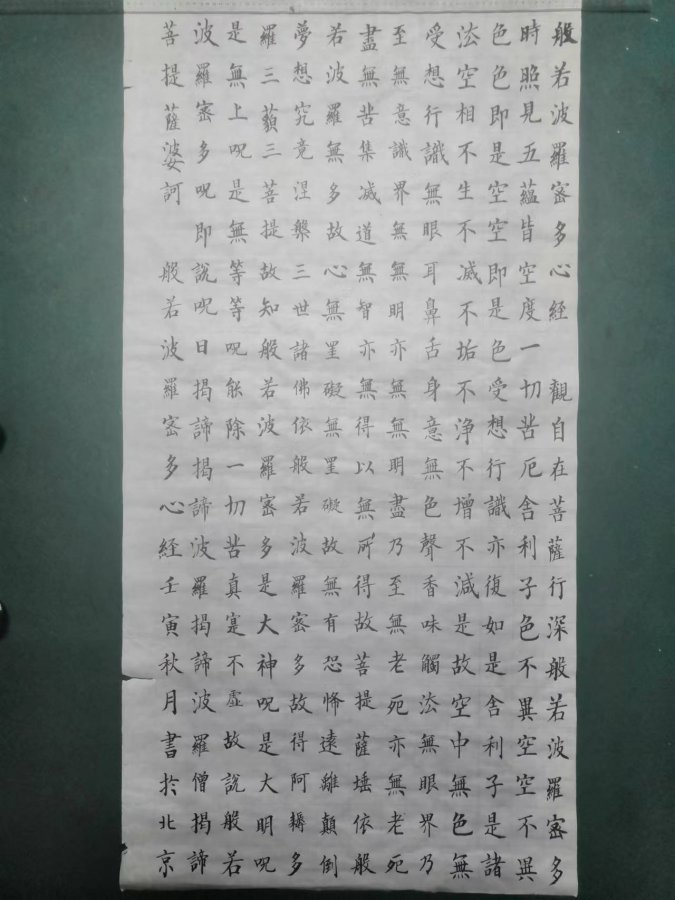 般若波羅密多心経　觀自在菩薩行深般若波羅密多
時照見五蘊皆空度一切苦厄舍利子色不異空空不異
色色即是空空即是色受想行識亦復如是舍利子是諸
法空相不生不滅不垢不浄不增不減是故空中無色無
受想行識無眼耳鼻舌身意無色聲香味觸法無眼界乃
至無意識界無無明亦無無明盡乃至無老死亦無老死
盡無苦集滅道無智亦無得以無所得故菩提薩埵依般
若波羅無多故心無罣礙無罣礙故無有恐怖遠離顛倒
夢想究竟涅槃三世諸佛依般若波羅密多故得阿耨多
羅三藐三菩提故知般若波羅密多是大神呪是大明呪
是無上呪是無等等呪能除一切苦真寔不虛故說般若
波羅密多呪即說呪曰揭諦揭諦波羅揭諦波羅僧揭諦
菩提薩婆訶　般若波羅密多心経壬寅秋月書於北京